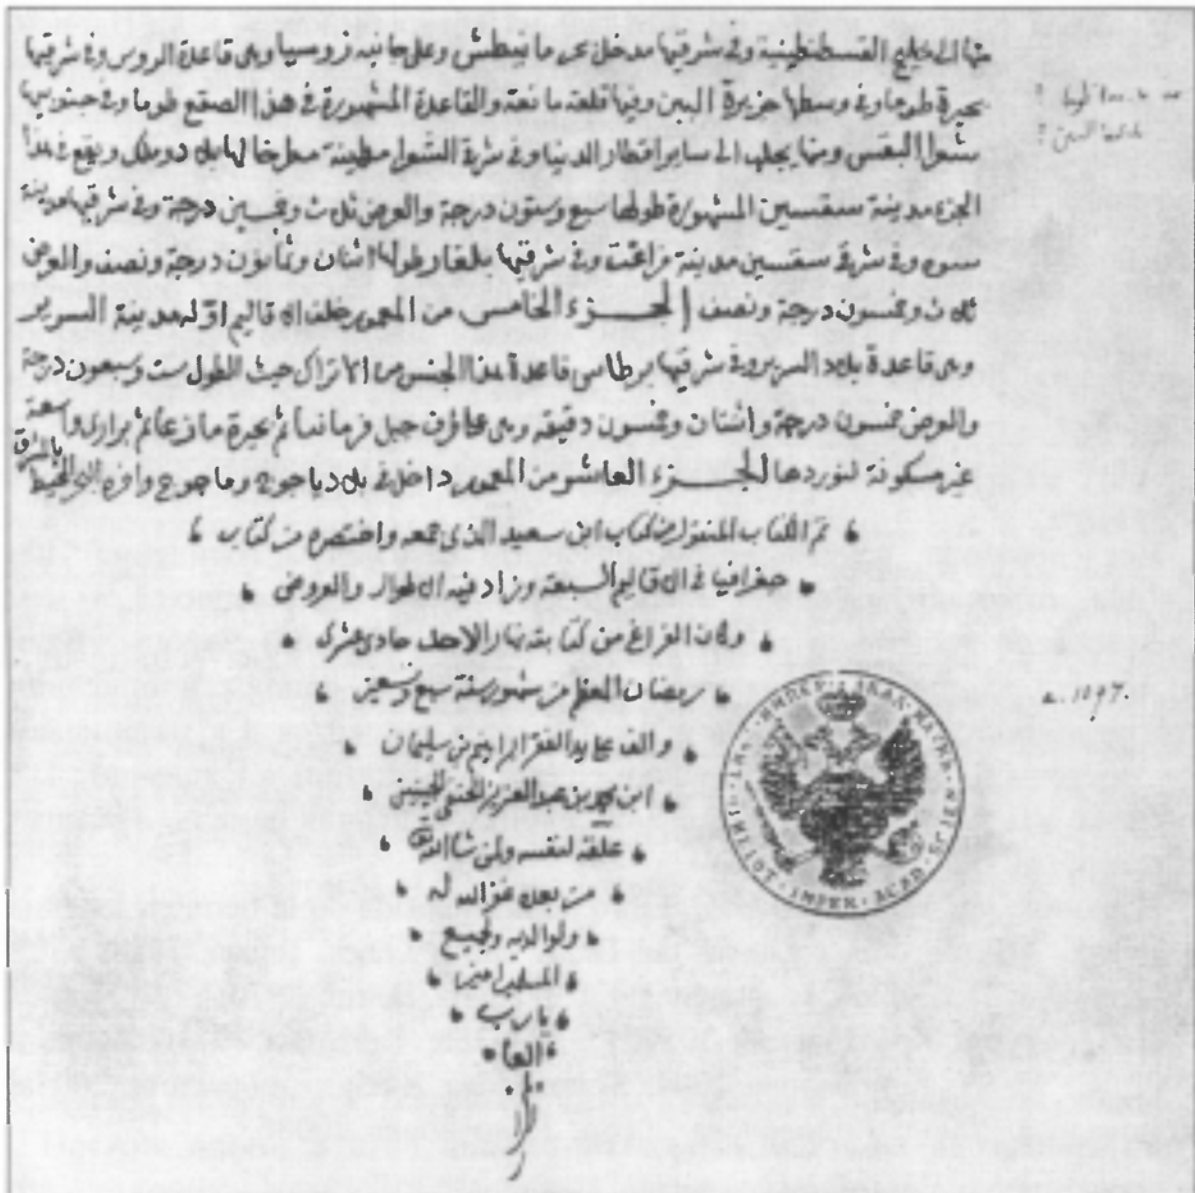 منها الى خليج القسطنطينية وفى شرقيها مدخل بحر مانيطش وعلى جانبه روسيا وهى قاعدة الروس وفى شرقيها
بحيرة طوما وفى وسطها جزيرة البين وفيها قلعة مانعة والقاعدة المشهورة فى هذا الصقع طوما وفى جنوبيها
شعرا البقس ومنها يجلب الى ساير اقطار الدنيا وفى شرقى الشعرا مدينة ويقع فى هذا
الجزء مدينة سقسين المشهورة طولها سبع وستون درجة والعرض ثلاث وخمسين درجة وفى شرقيها مدينة
وفى شرقى سقسين مدينة وفى شرقيها بلغار طوله اثنان وثمانون درجة ونصف والعرض
ثلاث وخمسون درجة ونصف الجزء الخامس من المعمور خلف الاقاليم اوله مدينة السرير
وهى قاعدة بلاد السرير وفى شرقيها برطاس قاعدة لهذا الجنس من الاتراك حيث الطول ست وسبعون درجة
والعرض خمسون درجة واثنان وخمسون دقيقة وهى على طرف جبل ثم بحيرة ثم برارى واسعة
غير مسكونة لنوردها الجزء العاشر من المعمور داخل فى بلاد ياجوج وماجوج واخره البحر المحيط بالمشرق
تم الكتاب المنقول من كتاب ابن سعيد الذى جمعه واختصره من كتاب
جغرافيا فى الاقاليم السبعة وزاد فيه الاطوال والعروض
وكان الفراغ من كتابته نهار الاحد حادى عشرى
رمضان المعظم من شهور سنة سبع وتسعين
والف على يد الفقير ابراهيم بن سليمان
ابن محمد بن عبد العزيز الحنفى الجينينى
علقه لنفسه ولمن شا الله
من بعده غفر الله له
ولوالديه ولجميع
المسلمين امين
يارب
العا
لمين
a. 1097.